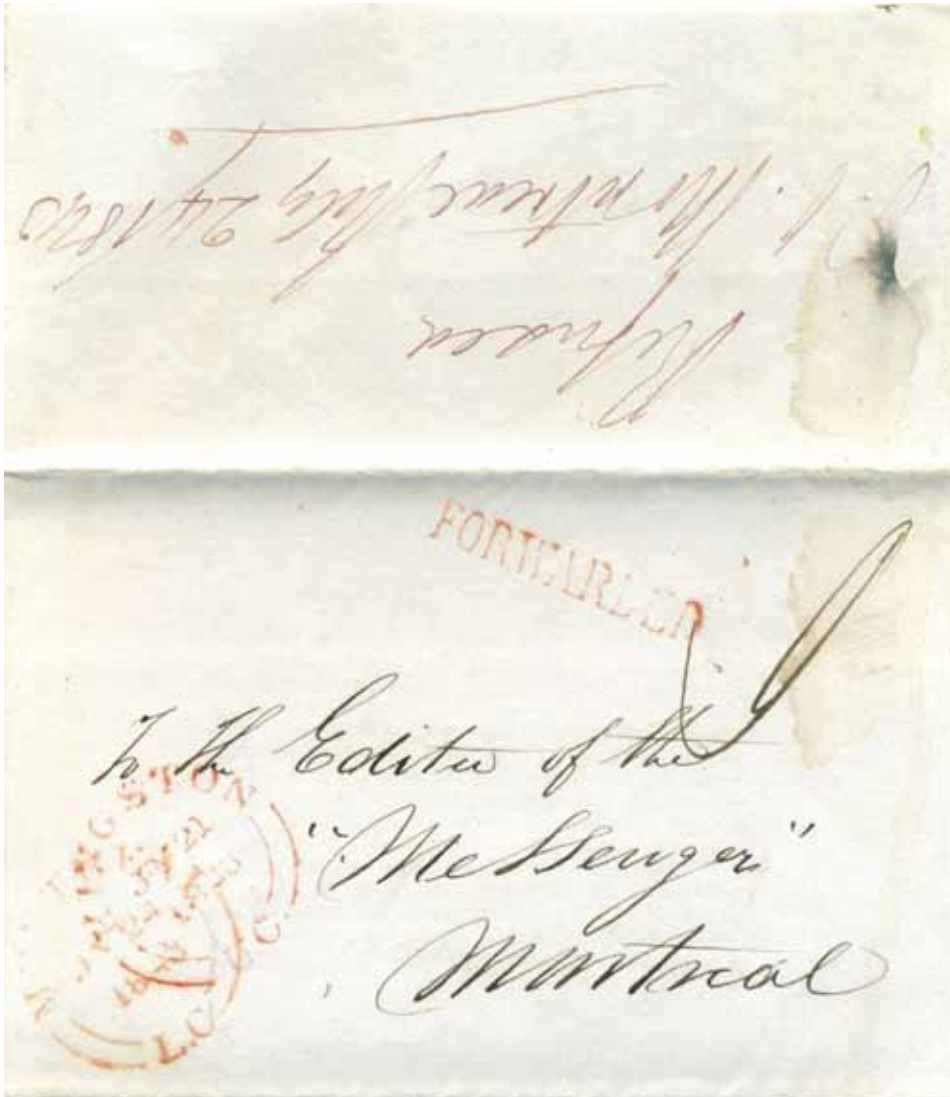 Refused
Montreal July 24 1843
FORWARDED
To the Editor of the
"Messenger"
Montreal
KINGSTON
JY 21
L.C.